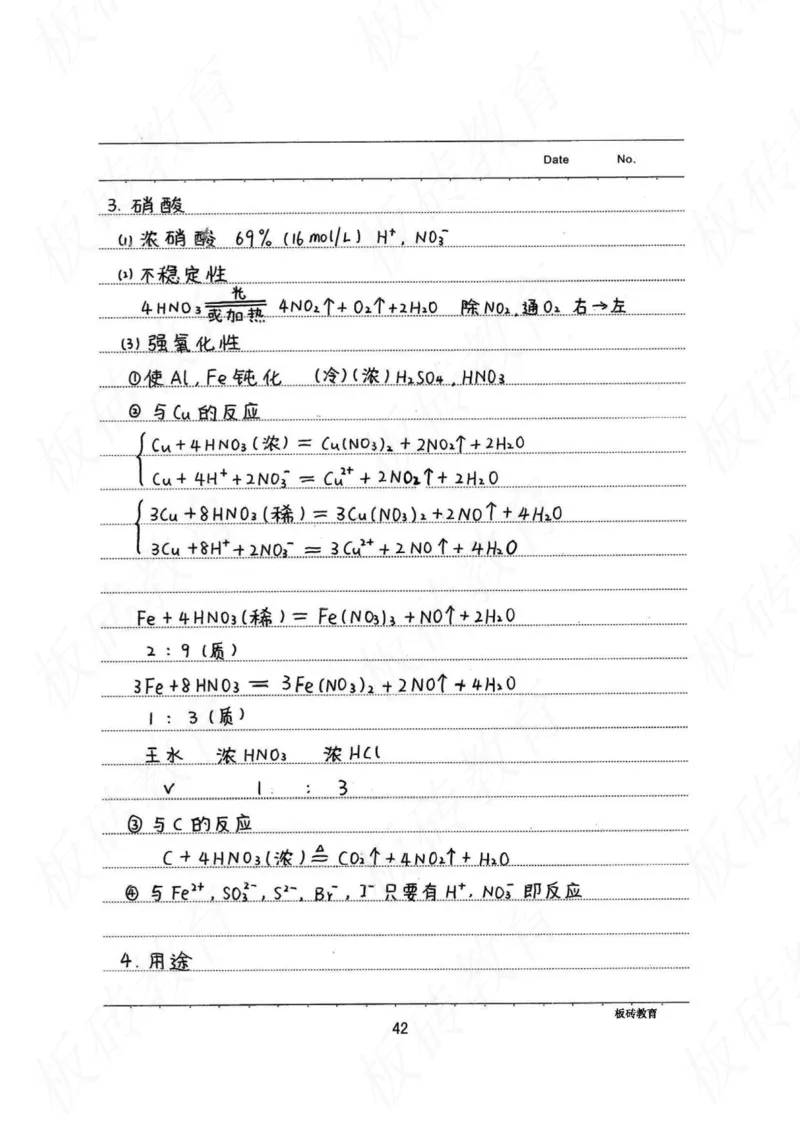 Date No.
3. 硝酸
(1) 浓硝酸 69% (16 mol/L) H⁺, NO₃⁻
(2) 不稳定性
光
4HNO₃ ══ 4NO₂↑ + O₂↑ + 2H₂O 除NO₂, 通O₂ 右→左
或加热
(3) 强氧化性
①使Al, Fe钝化 (冷)(浓) H₂SO₄, HNO₃
② 与Cu的反应
Cu + 4HNO₃(浓) = Cu(NO₃)₂ + 2NO₂↑ + 2H₂O
Cu + 4H⁺ + 2NO₃⁻ = Cu²⁺ + 2NO₂↑ + 2H₂O
3Cu + 8HNO₃(稀) = 3Cu(NO₃)₂ + 2NO↑ + 4H₂O
3Cu + 8H⁺ + 2NO₃⁻ = 3Cu²⁺ + 2NO↑ + 4H₂O
Fe + 4HNO₃(稀) = Fe(NO₃)₃ + NO↑ + 2H₂O
2 : 9 (质)
3Fe + 8HNO₃ = 3Fe(NO₃)₂ + 2NO↑ + 4H₂O
1 : 3 (质)
王水 浓HNO₃ 浓HCl
V 1 : 3
③ 与C的反应
△
C + 4HNO₃(浓) = CO₂↑ + 4NO₂↑ + H₂O
④ 与Fe²⁺, SO₃²⁻, S²⁻, Br⁻, I⁻ 只要有H⁺, NO₃⁻ 即反应
4. 用途
板砖教育
42